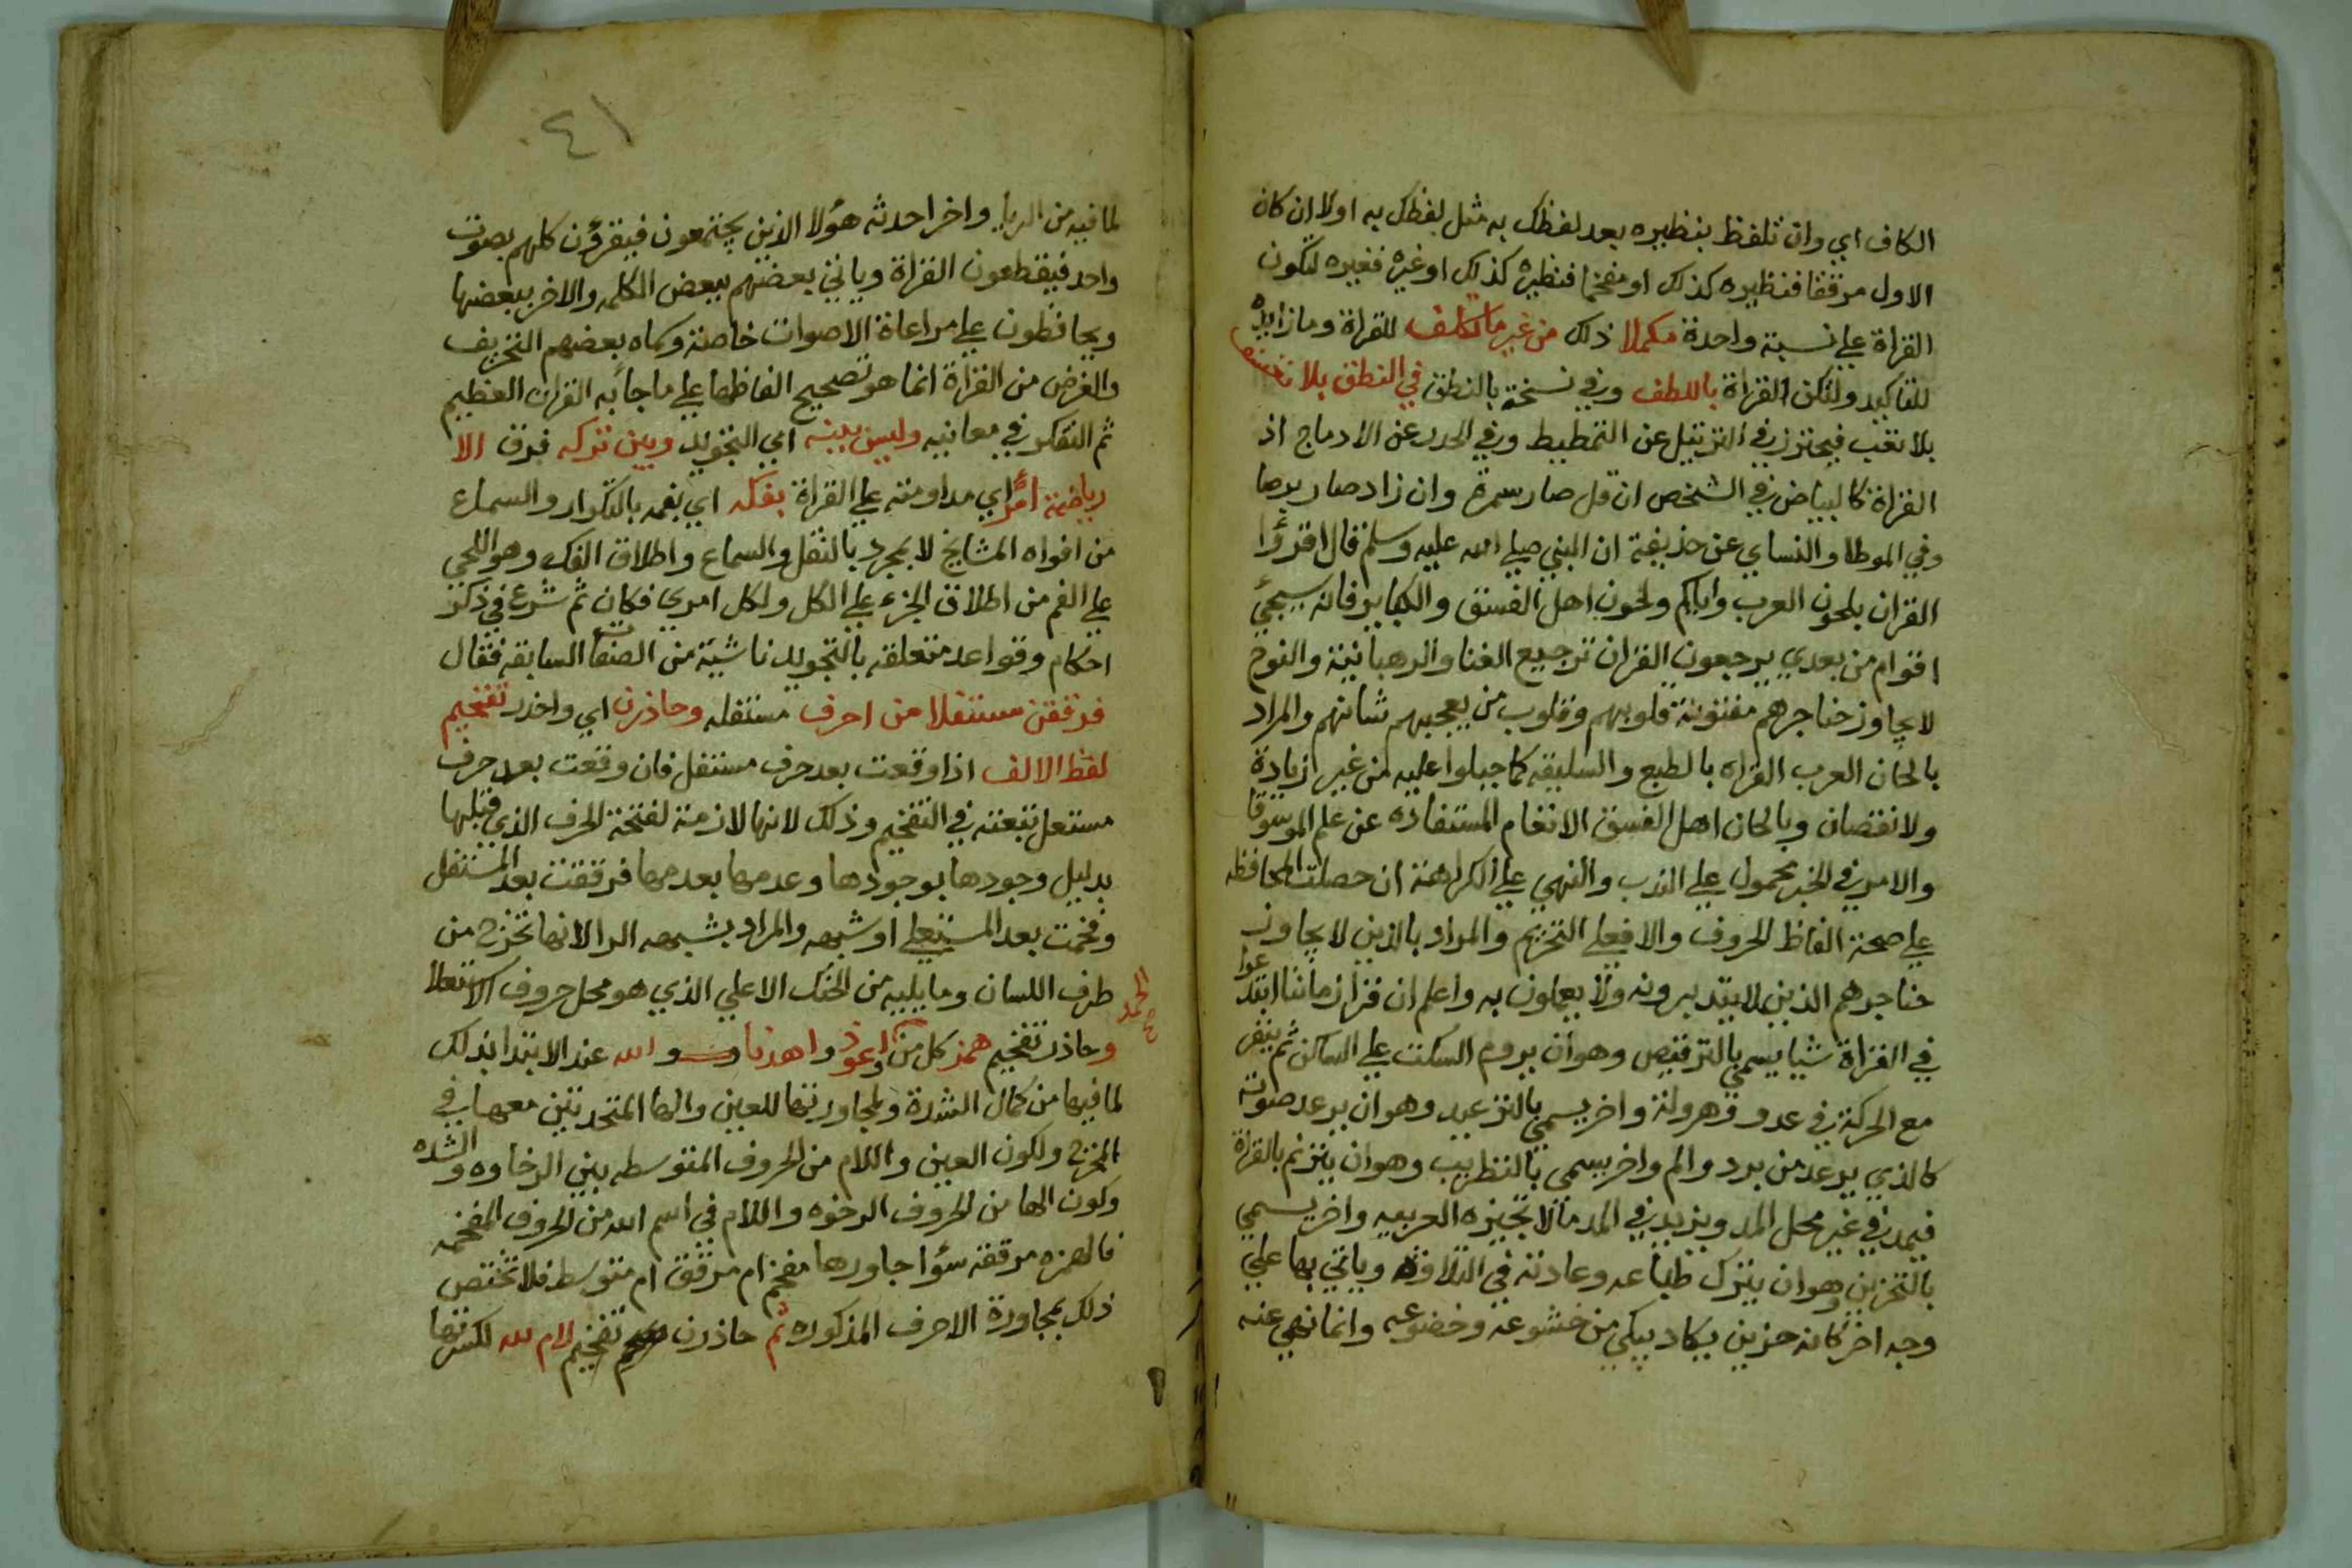 الكاف اي وان تلفظ بنظيره بعد لفظك به مثل لفظك به اولا ان كان
الاول مرققا فنظيره كذلك او مفخما فنظيره كذلك او غيره فغيره لتكون
القراة علي نسبة واحدة مكملا ذلك من غير ما تكلف للقراة وما زايدة
للتاكيد ولتكن القراة باللطف وفي نسخة بالنطق في النطق بلا تعسف
بلا تعب فيحترز في الترتيل عن التمطيط وفي الحدر عن الادماج اذ
القراة كالبياض في الشخص ان قل صار سمرة وان زاد صار برصا
وفي الموطا والنساي عن حذيفة ان النبي صلي الله عليه وسلم قال اقرؤا
القران بلحون العرب واياكم ولحون اهل الفسق والكباير فانه سيجئ
اقوام من بعدي يرجعون القران ترجيع الغنا والرهبانية والنوح
لا يجاوز حناجرهم مفتونة قلوبهم وقلوب من يعجبهم شانهم والمراد
بالحان العرب القراه بالطبع والسليقه كما جبلوا عليه من غير زيادة
ولا نقصان وبالحان اهل الفسق الانغام المستفاده عن علم الموسيقا
والامر في الخبر محمول علي الندب والنهي علي الكراهة ان حصلت المحافظه
علي صحة الفاظ الحروف والا فعلي التحريم والمراد بالذين لا يجاوز
حناجرهم الذين لا يتدبرونه ولا يعملون به واعلم ان قراء زماننا ابتدعوا
في القراة شيا يسمي بالترقيص وهو ان يروم السكت علي الساكن ثم ينفر
مع الحركة في عدو وهرولة واخر يسمي بالترعيد وهو ان يرعد صوته
كالذي يرعد من برد والم واخر يسمى بالتطريب وهو ان يترنم بالقراة
فيمد في غير محل المد ويزيد في المد ما لا تجيزه العربيه واخر يسمي
بالتحزين وهو ان يترك طباعه وعادته في التلاوة وياتي بها علي
وجه اخر كانه حزين يكاد يبكي من خشوعه وخضوعه وانما نهي عنه
٤١
لما فيه من الريا واخر احدثه هؤلا الذين يجتمعون فيقرؤن كلهم بصوت
واحد فيقطعون القراة وياتي بعضهم ببعض الكلمه والاخر ببعضها
ويحافظون علي مراعاة الاصوات خاصة وسماه بعضهم التحريف
والغرض من القراة انما هو تصحيح الفاظها علي ما جا به القران العظيم
ثم التفكر في معانيه وليس بينه اي التجويد وبين تركه فرق الا
رياضة امرئ اي مداومته علي القراة بفكه اي بفمه بالتكرار والسماع
من افواه المشايخ لا بمجرد بالنقل والسماع واطلاق الفك وهو اللحي
علي الفم من اطلاق الجزء علي الكل ولكل امرئ فكان ثم شرع في ذكر
احكام وقواعد متعلقه بالتجويد ناشية من الصفات السابقه فقال
فرققن مستفلا من احرف مستفله وحاذرن اي واحذر تفخيم
لفظ الالف اذا وقعت بعد حرف مستفل فان وقعت بعد حرف
مستعل تبعته في التفخيم وذلك لانها لازمة لفتحة الحرف الذي قبلها
بدليل وجودها بوجودها وعدمها بعدمها فرققت بعد المستفل
وفخمت بعد المستعلي او شبهه والمراد بشبهه الرا لانها تخرج من
طرف اللسان وما يليه من الحنك الاعلي الذي هو محل حروف الاستعلا
وحاذرن تفخيم همز كل من الحمد واعوذ واهدنا والله عند الابتدا بذلك
لما فيها من كمال الشدة ولمجاورتها للعين والها المتحدتين معها في
المخرج ولكون العين واللام من الحروف المتوسطه بين الرخاوه والشده
وكون الها من الحروف الرخوه واللام في اسم الله من الحروف المفخمه
فالهمزه مرققة سؤا جاورها مفخم ام مرقق ام متوسط فلا تختص
ذلك بمجاورة الاحرف المذكوره ثم حاذرن تفخيم لام لله لكسرتها